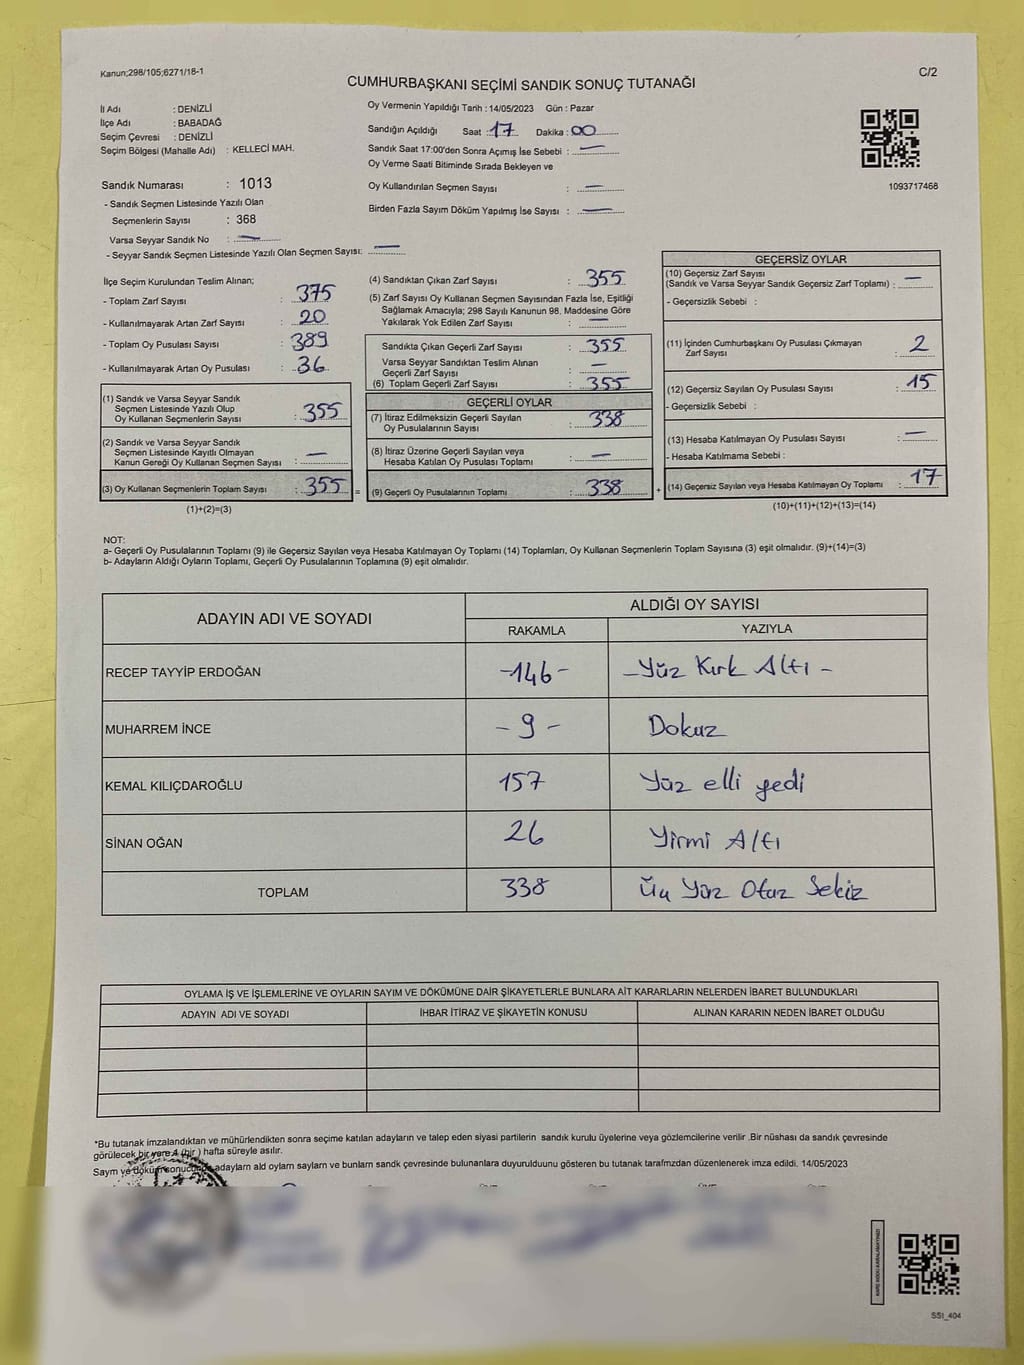 Kanun;298/105;6271/18-1
C/2
CUMHURBAŞKANI SEÇİMİ SANDIK SONUÇ TUTANAĞI
İl Adı : DENİZLİ
İlçe Adı : BABADAĞ
Seçim Çevresi : DENİZLİ
Seçim Bölgesi (Mahalle Adı) : KELLECİ MAH.
Sandık Numarası : 1013
- Sandık Seçmen Listesinde Yazılı Olan
Seçmenlerin Sayısı : 368
Varsa Seyyar Sandık No : —
- Seyyar Sandık Seçmen Listesinde Yazılı Olan Seçmen Sayısı: —
Oy Vermenin Yapıldığı Tarih : 14/05/2023 Gün : Pazar
Sandığın Açıldığı Saat : 17 Dakika : 00
Sandık Saat 17:00'den Sonra Açımış İse Sebebi : —
Oy Verme Saati Bitiminde Sırada Bekleyen ve
Oy Kullandırılan Seçmen Sayısı : —
Birden Fazla Sayım Döküm Yapılmış İse Sayısı : —
1093717468
İlçe Seçim Kurulundan Teslim Alınan;
- Toplam Zarf Sayısı : 375
- Kullanılmayarak Artan Zarf Sayısı : 20
- Toplam Oy Pusulası Sayısı : 389
- Kullanılmayarak Artan Oy Pusulası : 36
(1) Sandık ve Varsa Seyyar Sandık
Seçmen Listesinde Yazılı Olup
Oy Kullanan Seçmenlerin Sayısı : 355
(2) Sandık ve Varsa Seyyar Sandık
Seçmen Listesinde Kayıtlı Olmayan
Kanun Gereği Oy Kullanan Seçmen Sayısı : —
(3) Oy Kullanan Seçmenlerin Toplam Sayısı : 355 =
(1)+(2)=(3)
(4) Sandıktan Çıkan Zarf Sayısı : 355
(5) Zarf Sayısı Oy Kullanan Seçmen Sayısından Fazla İse, Eşitliği
Sağlamak Amacıyla; 298 Sayılı Kanunun 98. Maddesine Göre
Yakılarak Yok Edilen Zarf Sayısı : —
Sandıkta Çıkan Geçerli Zarf Sayısı : 355
Varsa Seyyar Sandıktan Teslim Alınan
Geçerli Zarf Sayısı : —
(6) Toplam Geçerli Zarf Sayısı : 355
GEÇERLİ OYLAR
(7) İtiraz Edilmeksizin Geçerli Sayılan
Oy Pusulalarının Sayısı : 338
(8) İtiraz Üzerine Geçerli Sayılan veya
Hesaba Katılan Oy Pusulası Toplamı : —
(9) Geçerli Oy Pusulalarının Toplamı : 338 +
GEÇERSİZ OYLAR
(10) Geçersiz Zarf Sayısı
(Sandık ve Varsa Seyyar Sandık Geçersiz Zarf Toplamı) : —
- Geçersizlik Sebebi :
(11) İçinden Cumhurbaşkanı Oy Pusulası Çıkmayan
Zarf Sayısı : 2
(12) Geçersiz Sayılan Oy Pusulası Sayısı : 15
- Geçersizlik Sebebi :
(13) Hesaba Katılmayan Oy Pusulası Sayısı : —
- Hesaba Katılmama Sebebi :
(14) Geçersiz Sayılan veya Hesaba Katılmayan Oy Toplamı : 17
(10)+(11)+(12)+(13)=(14)
NOT:
a- Geçerli Oy Pusulalarının Toplamı (9) ile Geçersiz Sayılan veya Hesaba Katılmayan Oy Toplamı (14) Toplamları, Oy Kullanan Seçmenlerin Toplam Sayısına (3) eşit olmalıdır. (9)+(14)=(3)
b- Adayların Aldığı Oyların Toplamı, Geçerli Oy Pusulalarının Toplamına (9) eşit olmalıdır.
ADAYIN ADI VE SOYADI ALDIĞI OY SAYISI
RAKAMLA YAZIYLA
RECEP TAYYİP ERDOĞAN -146- -Yüz Kırk Altı-
MUHARREM İNCE -9- Dokuz
KEMAL KILIÇDAROĞLU 157 Yüz elli yedi
SİNAN OĞAN 26 Yirmi Altı
TOPLAM 338 Üç Yüz Otuz Sekiz
OYLAMA İŞ VE İŞLEMLERİNE VE OYLARIN SAYIM VE DÖKÜMÜNE DAİR ŞİKAYETLERLE BUNLARA AİT KARARLARIN NELERDEN İBARET BULUNDUKLARI
ADAYIN ADI VE SOYADI İHBAR İTİRAZ VE ŞİKAYETİN KONUSU ALINAN KARARIN NEDEN İBARET OLDUĞU
*Bu tutanak imzalandıktan ve mühürlendikten sonra seçime katılan adayların ve talep eden siyasi partilerin sandık kurulu üyelerine veya gözlemcilerine verilir .Bir nüshası da sandık çevresinde
görülecek bir yere 1 (bir ) hafta süreyle asılır.
Sayım ve döküm sonucunda adayların ald oyların sayların ve bunların sandk çevresinde bulunanlara duyurulduunu gösteren bu tutanak tarafmzdan düzenlenerek imza edildi. 14/05/2023
SSI_404